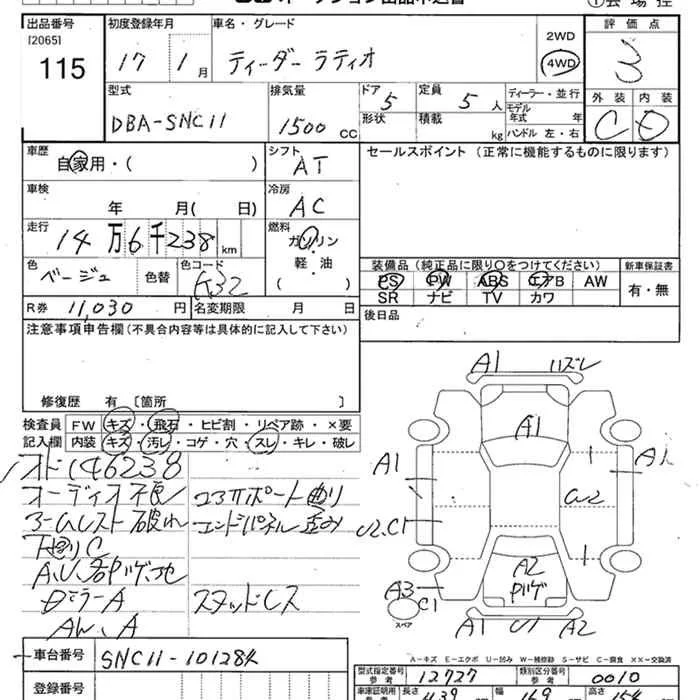 出品番号 初度登録年月 車名・グレード 評価点
[2065]
115
17 1月 ティーダー ラティオ 2WD 4WD 3
型式 排気量 ドア 5 定員 5人 ディーラー・並行 外装 内装
DBA-SNC11 1500 CC 形状 積載 kg モデル年式 年 ハンドル 左・右 C D
車歴 自家用・( ) シフト AT セールスポイント (正常に機能するものに限ります)
車検 年 月( 日) 冷房 AC
走行 14万6千238km 燃料 ガソリン
軽・油
( )
色 ベージュ 色替 色コード K32
装備品(純正品に限り○をつけてください) 新車保証書
PS PW ABS エアB AW 有・無
SR ナビ TV カワ
R券 11,030円 名変期限 月 日 後日品
注意事項申告欄(不具合内容等は具体的に記入して下さい)
修復歴 有 [箇所 ]
検査員 FW キズ・飛石・ヒビ割・リペア跡・×要
記入欄 内装 キズ・汚レ・コゲ・穴・スレ・キレ・破レ
メオド146238
オーディオ不良 コアサポート曲り
アームレスト破れ エンドパネル歪み
下廻りC
ドミラーA スタッドレス
AW、A
A1 ハズレ
A1
A1 A1
U2
U2.C1
A2
ハゲ
A3
C1
スペア
A1 U1 A2
A-キズ E-エクボ U-凹み W-補修跡 S-サビ C-腐食 XX-交換済
車台番号 SNC11-101284
登録番号
型式指定番号 参考 12727 類別区分番号 参考 0010
車庫証明用 参考 長さ 439 幅 169 高さ 154